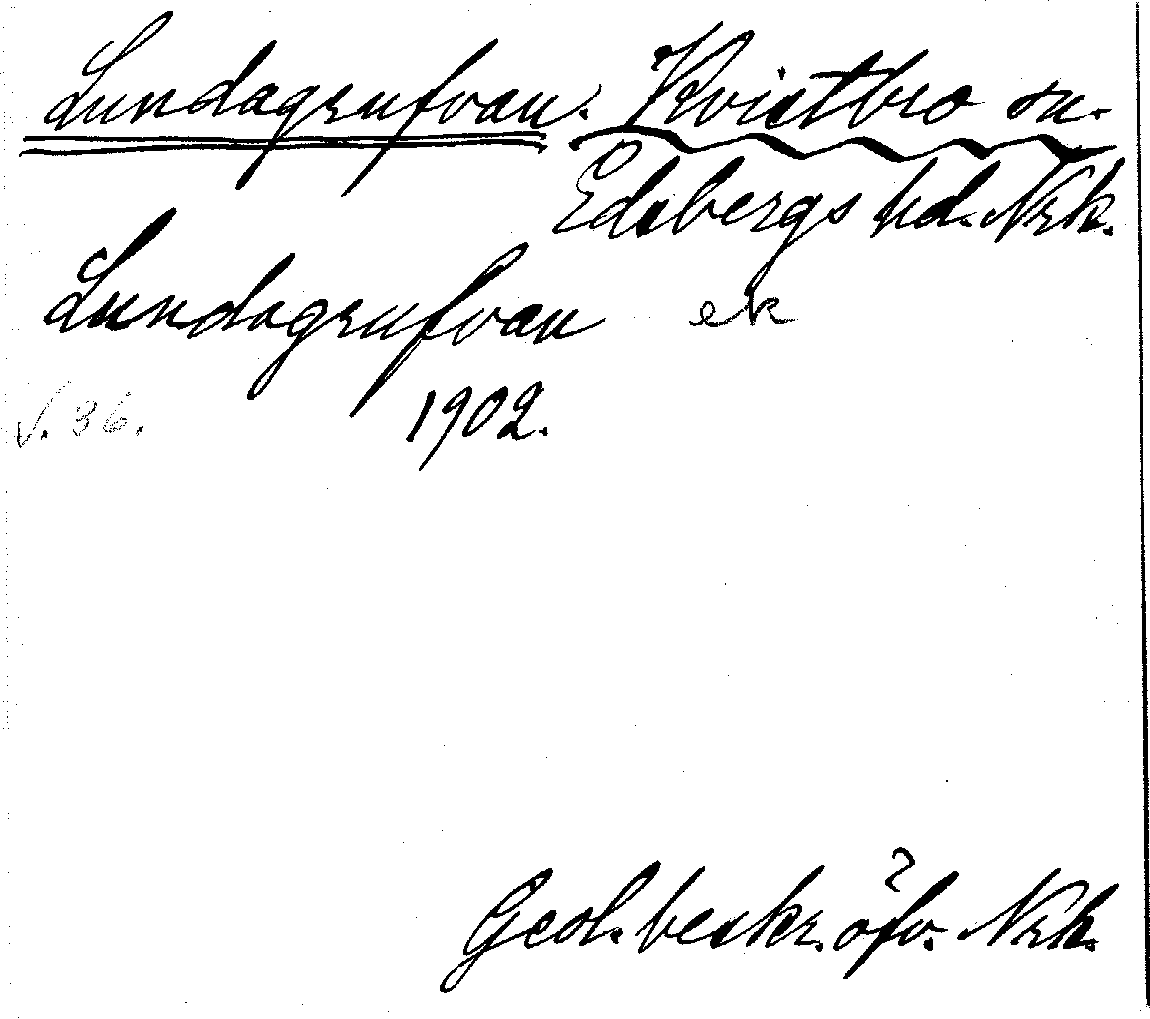 Lundagrufvan. Kvistbro sn.
Edsbergs hd. Nrk.
Lundagrufvan ek
V. 36. 1902.
Geol. beskr. öfv. Nrk.